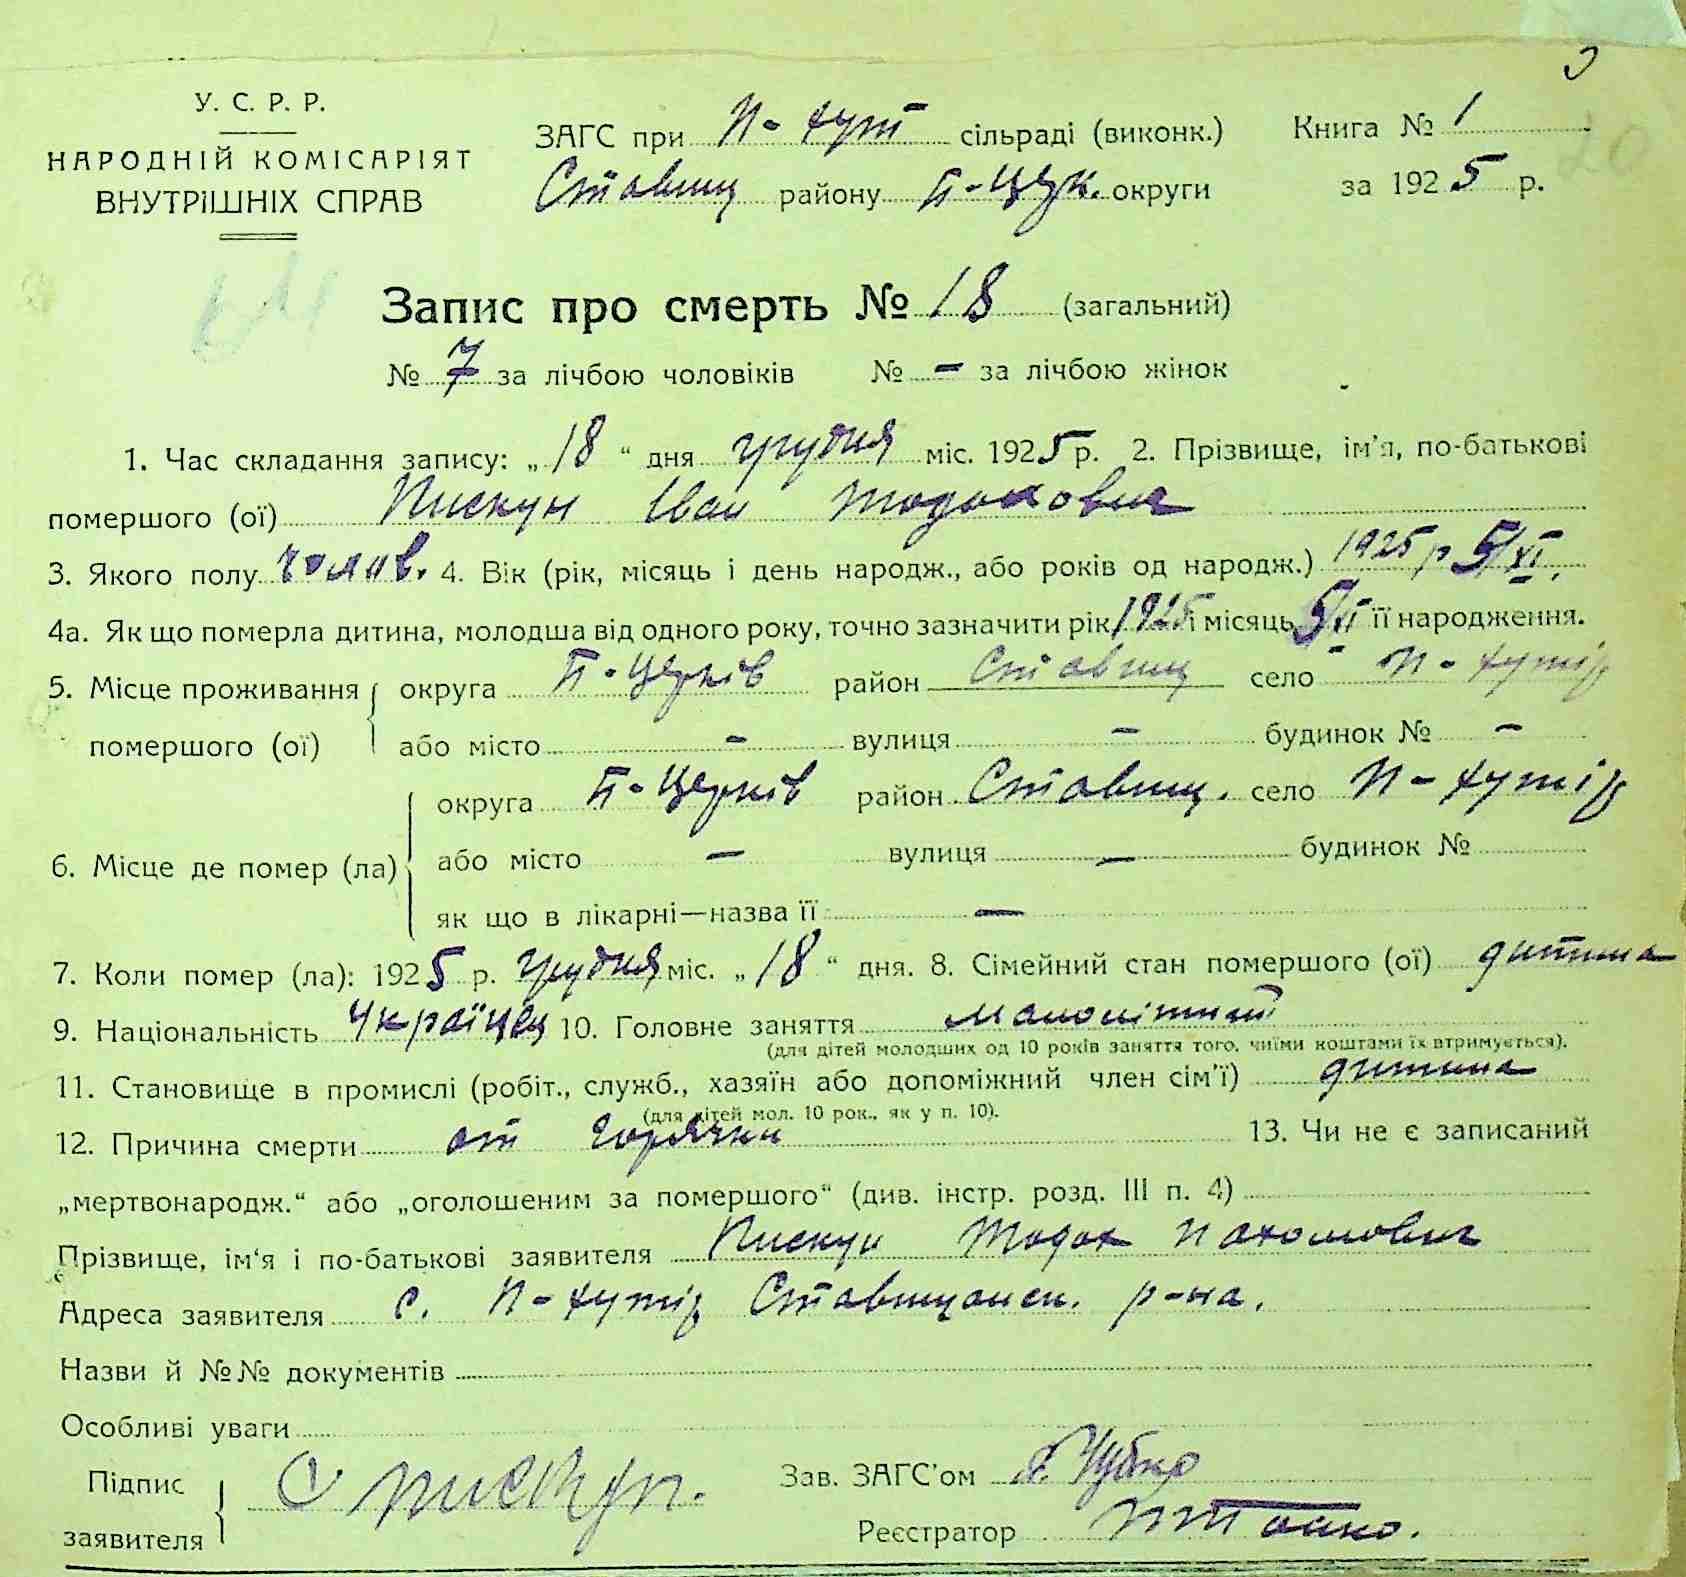 У. С. Р. Р.
НАРОДНІЙ КОМІСАРІЯТ
ВНУТРІШНІХ СПРАВ
ЗАГС при П-хут сільраді (виконк.)
Ставищ району Б-Церк. округи
Книга № 1
за 1925 р.
20
Запис про смерть № 18 (загальний)
№ 7 за лічбою чоловіків № – за лічбою жінок
1. Час складання запису: „18“ дня грудня міс. 1925 р. 2. Прізвище, ім'я, по-батькові
помершого (ої) Пискун Іван Тодохович
3. Якого полу чолов. 4. Вік (рік, місяць і день народж., або років од народж.) 1925 р 5/XI.
4а. Як що померла дитина, молодша від одного року, точно зазначити рік 1925 і місяць 5/XI її народження.
5. Місце проживання помершого (ої) округа Б-Церків район Ставищ село П-хутір
або місто – вулиця – будинок № –
6. Місце де помер (ла) округа Б-Церків район Ставищ. село П-хутір
або місто – вулиця – будинок №
як що в лікарні—назва її –
7. Коли помер (ла): 1925 р. грудня міс. „18“ дня. 8. Сімейний стан помершого (ої) дитина
9. Національність Українец 10. Головне заняття малолітний
(для дітей молодших од 10 років заняття того, чиїми коштами їх втримується).
11. Становище в промислі (робіт., служб., хазяїн або допоміжний член сім'ї) дитина
(для дітей мол. 10 рок., як у п. 10).
12. Причина смерти от горячки 13. Чи не є записаний
„мертвонародж.“ або „оголошеним за помершого“ (див. інстр. розд. III п. 4)
Прізвище, ім'я і по-батькові заявителя Пискун Тодох Пахомович
Адреса заявителя с. П-хутір Ставищанск. р-на.
Назви й №№ документів
Особливі уваги
Підпис заявителя Пискун.
Зав. ЗАГС'ом
Реєстратор